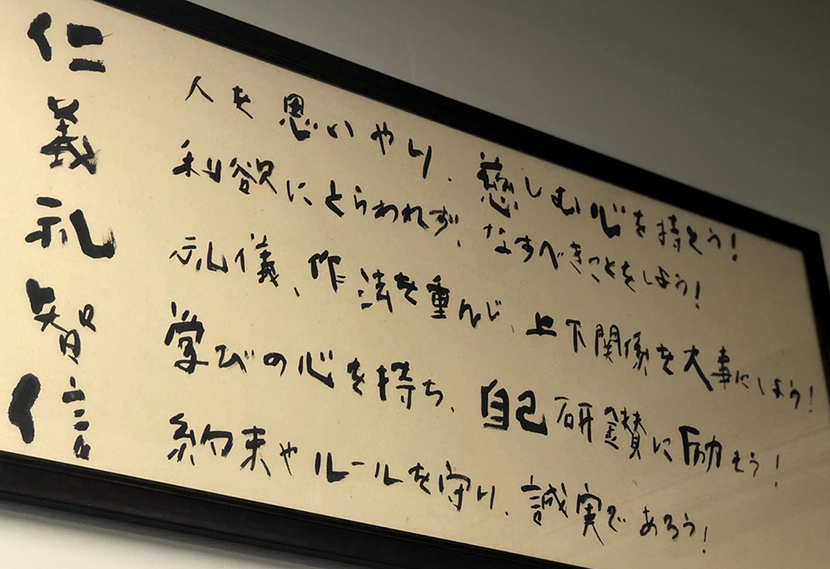 仁 人を思いやり、慈しむ心を持とう!
義 利欲にとらわれず、なすべきことをしよう!
礼 礼儀、作法を重んじ、上下関係を大事にしよう!
智 学びの心を持ち、自己研鑚に励もう!
信 約束やルールを守り、誠実であろう!